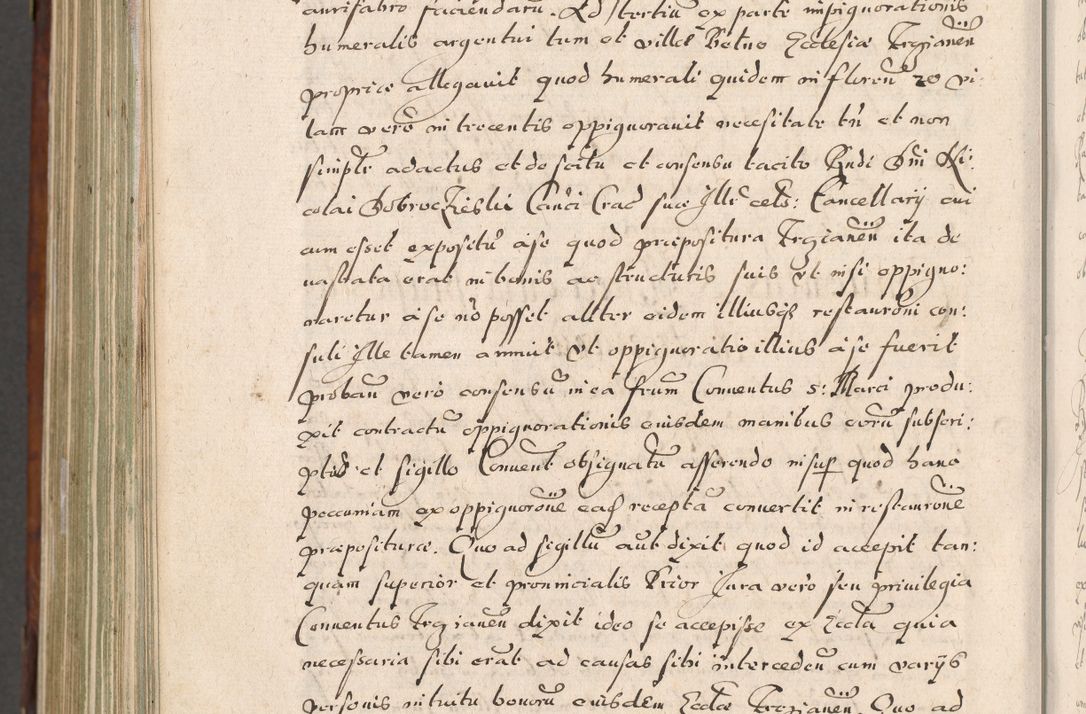 aurifabro faciendaru. Ad tertiu ex parte impignorationis
humeralis argentui tum et villæ Betno Ecclesiæ Trzianen
propriæ allegavit quod humerali quidem in floren 20 vi:
lam vero in trecentis oppignoravit necesitate tn et non
simplr adactus et de scitu et consensu tacito Rndi Dni Ni:
colai Dobrocieski Canci Crac suæ Illm cels: Cancellarij cui
cum esset expositu a se quod præpositura Trzianen ita de
vastata erat in bonis ac structuris suis ut nisi oppigno:
raretur a se no posset aliter eidem illiusq restauroni con:
suli Ille tamen annuit ut oppignoratio illius a se fuerit
probau vero consensu in ea frum Conventus s: Marci produ:
xit contractu oppignorationis eiusdem manibus eoru subscri:
ptis et sigillo Convent obsignatu asserendo insup quod hanc
pecuniam ex oppignorone eas recepta convertit in restaurone
præposituræ. Quo ad sigillu aut dixit quod id accepit tan:
quam superior et provincialis Prior Jura vero seu privilegia
Conventus Trzianen dixit ideo se accepisse ex Eccla quia
necessaria sibi erat ad causas sibi interceden cum varijs
personis intuitu bonoru eiusdem Ecclæ Trzianen. Quo ad